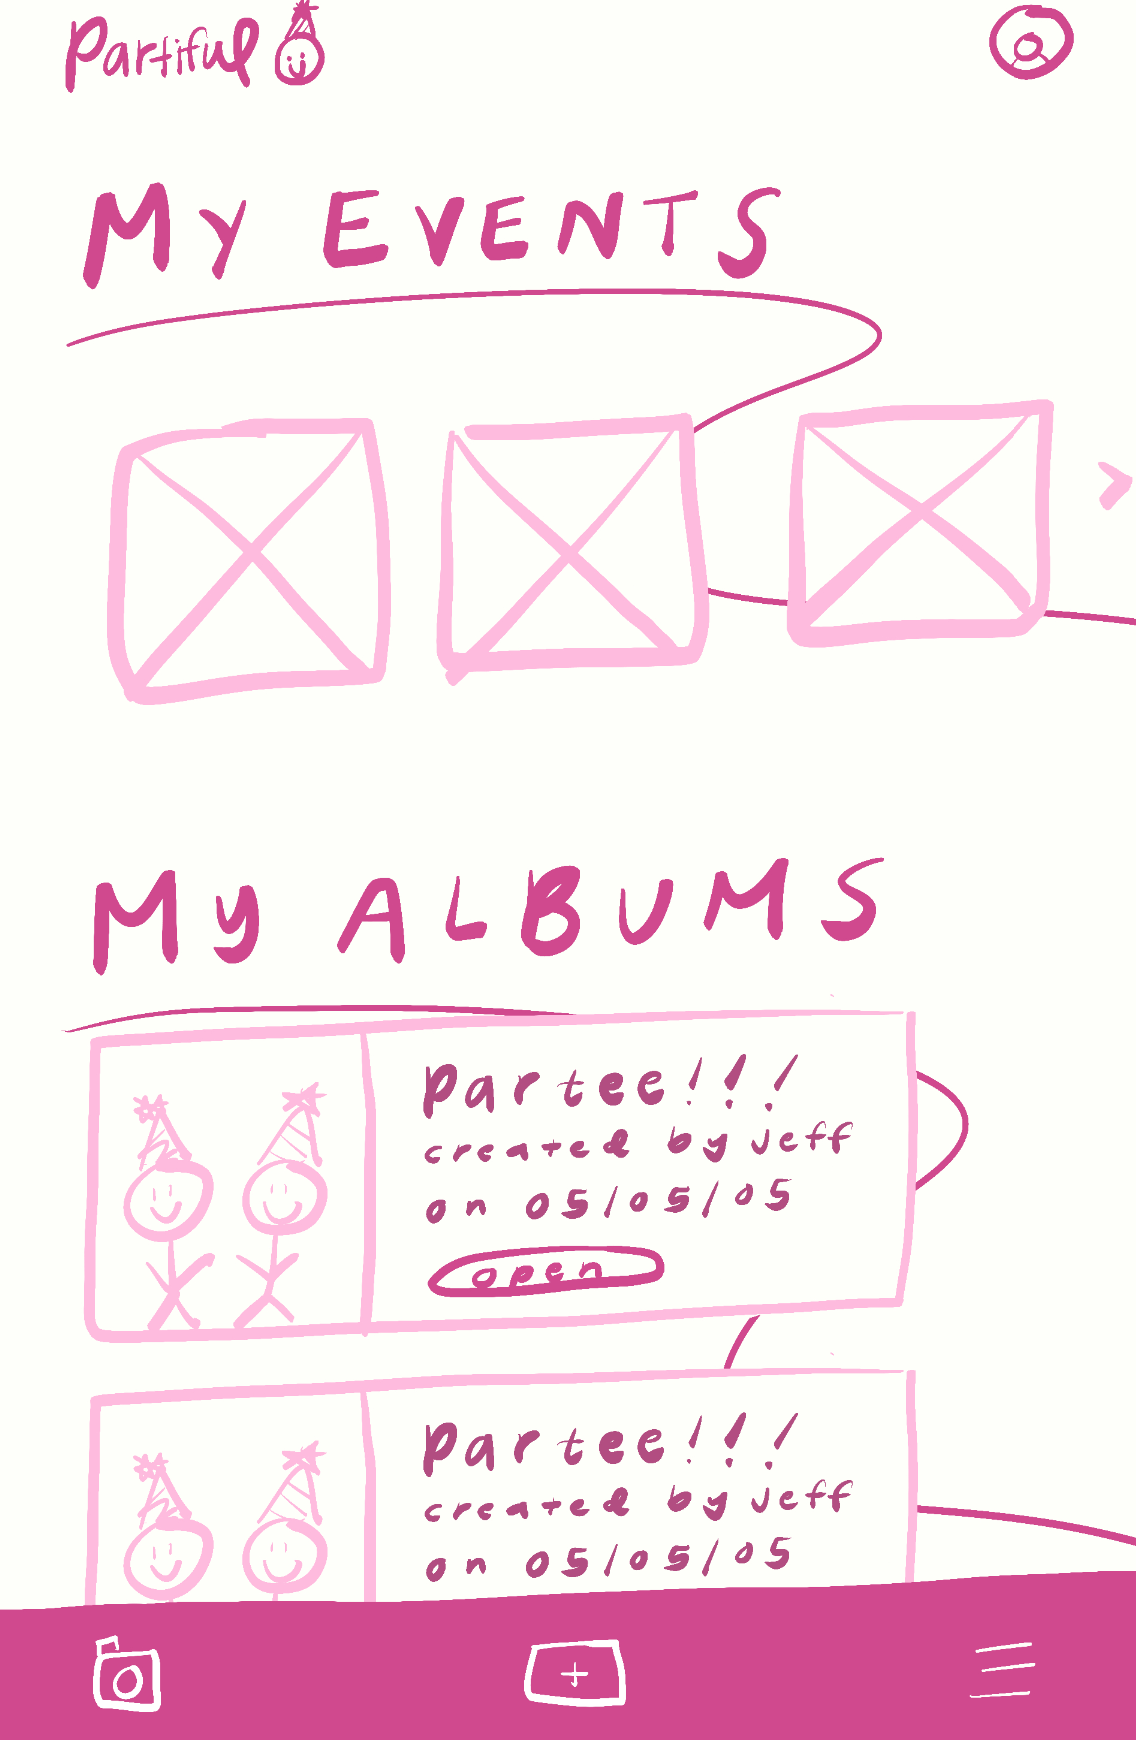 Partiful
My EVENTS
My ALBUMS
Partee!!!
created by jeff
on 05/05/05
open
Partee!!!
created by jeff
on 05/05/05